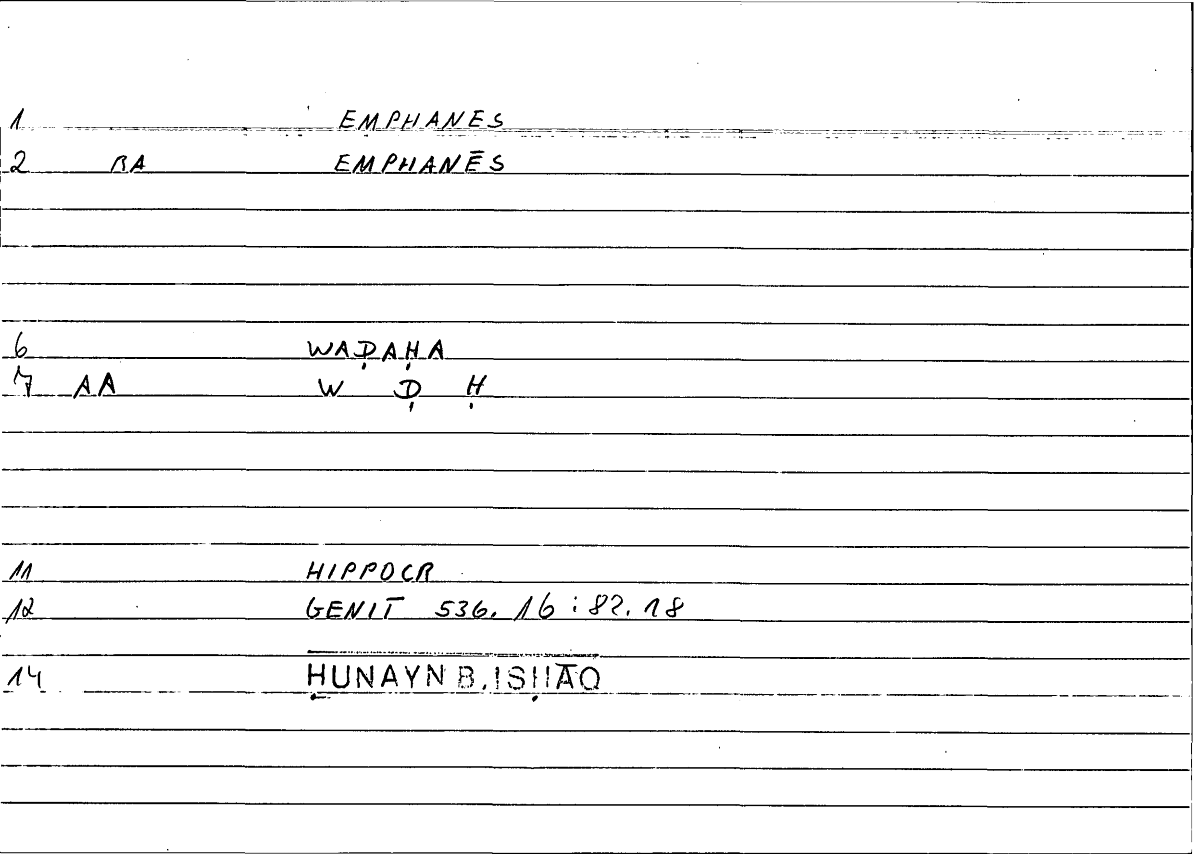 1 EMPHANES
2 BA EMPHANĒS
6 WAḌAḤA
7 AA W Ḍ Ḥ
11 HIPPOCR
12 GENIT 536. 16 : 82. 18
14 ḤUNAYN B. ISḤĀQ